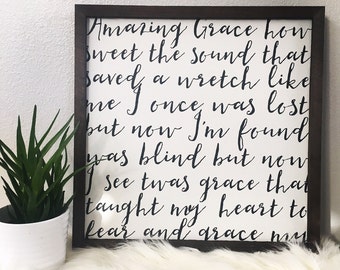 Amazing Grace how
sweet the sound that
saved a wretch like
me I once was lost
but now I'm found
was blind but now
I see twas grace that
taught my heart to
fear and grace my